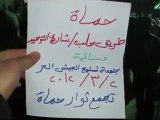 حماة
طريق حلب / شارع التوحيد
مسائية
جمعة تسليح الجيش الحر
٢٠١٢/٣/٢
تجمع ثوار حماة